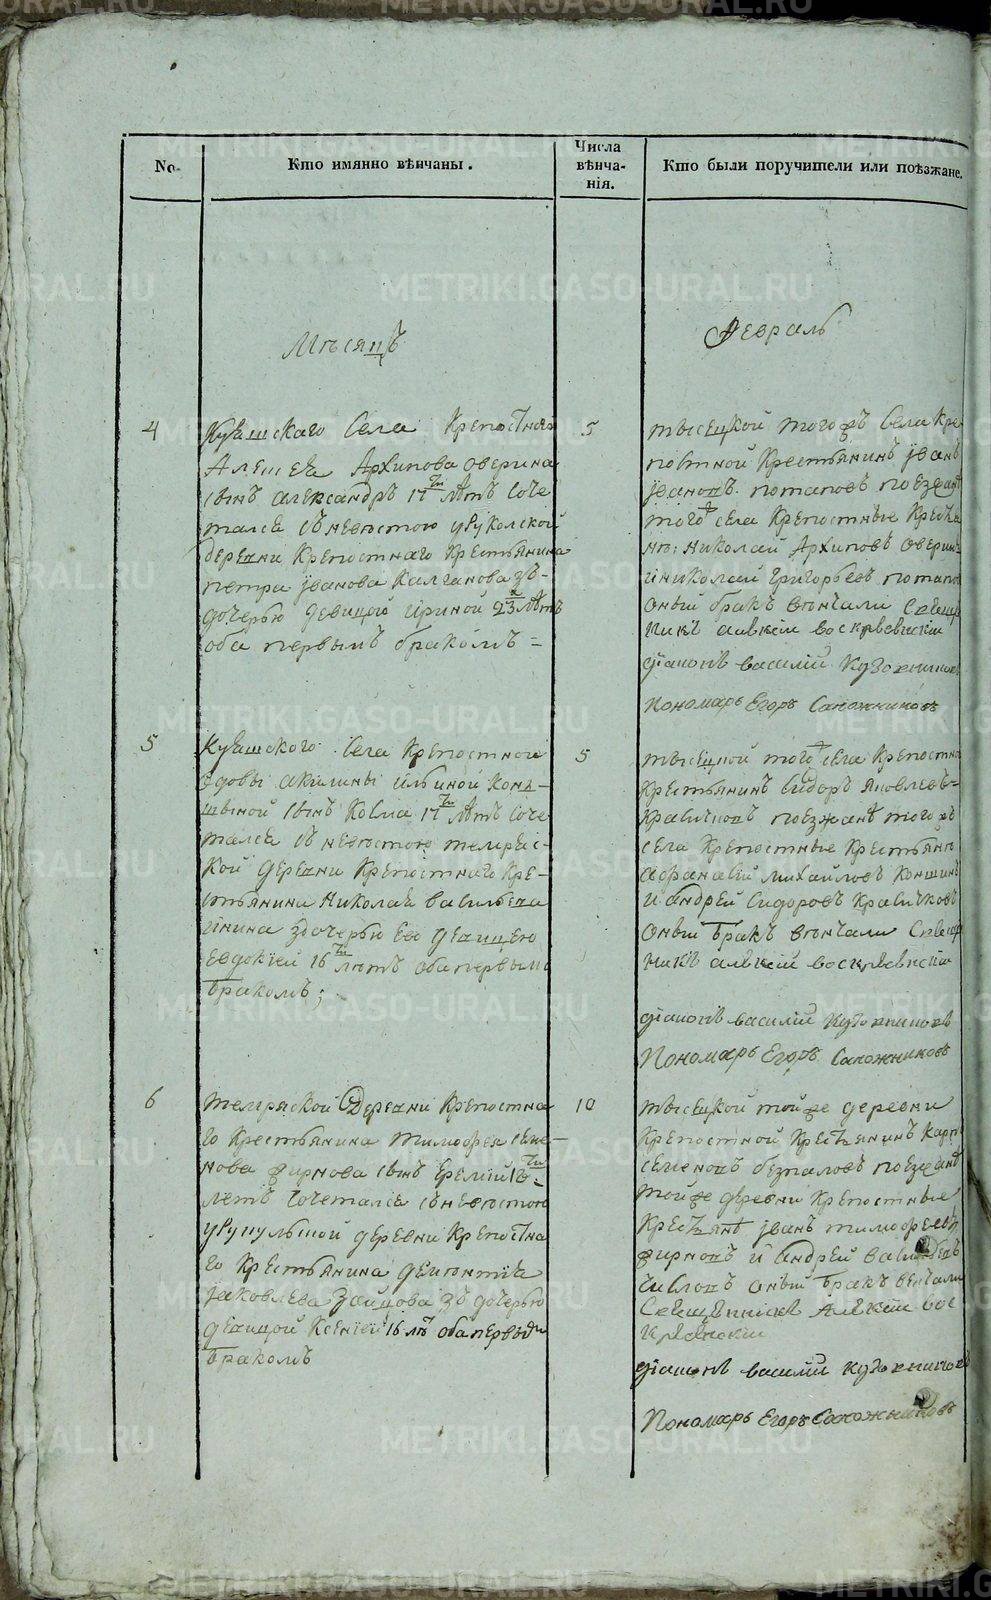 No.
Кто имянно вѣнчаны.
Числа
вѣнча-
нія.
Кто были поручители или поѣзжане.
Мѣсяцъ
Февраль
4
Куяшскаго Села Крепостнаго
Алексея Архипова Оверина
сынъ александръ 17ти лѣтъ Соче
тался съ невѣстою Урукулской
деревни Крепостнаго Крестьянина
петра іванова Калганова зъ-
дочерью девицой іриной 23х лѣтъ
оба первымъ бракомъ =
5
тысецкой тогожъ Села Кре
постной Крестьянинъ іванъ
івановъ потаповъ поезжанѣ
тогожъ села Крепостные Кресть
нѣ: николай Архиповъ Оверинъ
іниколай григорьевъ потапо
Оный бракъ венчали Свещ
никъ алексій воскресенскій
діаконъ василій Кузовниковъ
Пономарь Егоръ Сапожниковъ
5
Куяшского Села Крепостной
вдовы акилины ильиной Конш-
иной сынъ Косма 17ти лѣтъ Соче
тался съ невестою темряс-
кой деревни Крепостнаго Кре-
стьянина Николая васильева
здочерью Ево девицею
Евдокіей 16ти лѣтъ оба первымъ
бракомъ;
5
тысецкой тогожъ села Крепостно
Крестьянинъ Сидоръ Яковлевъ-
поезжанѣ тогожъ
села Крепостные Крестьяне
афанасій михайловъ Коншинъ
и андрей Сидоровъ
Оный бракъ венчали Свещ
никъ алексій воскресенскій
діаконъ василій Кузовниковъ
Пономарь Егоръ Сапожниковъ
6
темряской Деревни Крепостна
го Крестьянина тимофея семе-
нова жирнова сынъ Еремій 18ти
летъ Сочетался съ невестою
урукульской деревни Крепостна
го Крестьянина дементья
іаковлева Зайцова зъ дочерью
девицой Ксеніей 16 лѣ оба первы
бракомъ
10
тысецкой тойже деревни
Крепостной Крестьянинъ карп
семеновъ безпаловъ поезжанѣ
тойже деревни Крепостные
Крестьянѣ іванъ тимофеевъ
жирновъ и андрей васильевъ
оный бракъ венчали
Свещенникъ Алексій вос
кресенскій
діаконъ василій кузовниковъ
Пономарь Егоръ Сапожниковъ
METRIKI.GASO-URAL.RU